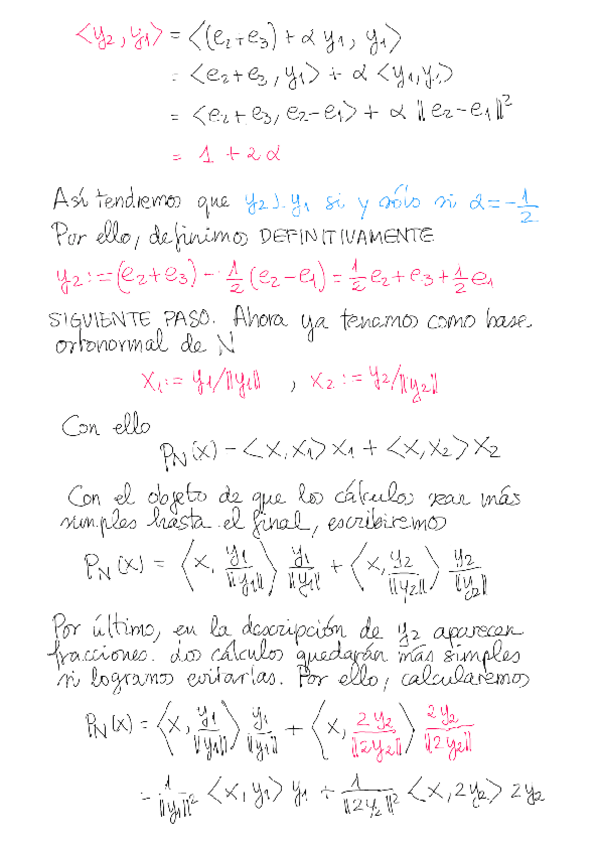 ⟨y₂, y₁⟩ = ⟨(e₂+e₃) + α y₁, y₁⟩
= ⟨e₂+e₃, y₁⟩ + α ⟨y₁, y₁⟩
= ⟨e₂+e₃, e₂-e₁⟩ + α ‖e₂-e₁‖²
= 1 + 2α
Así tendremos que y₂⊥y₁ si y sólo si α = -1/2
Por ello, definimos DEFINITIVAMENTE
y₂ := (e₂+e₃) - 1/2 (e₂-e₁) = 1/2 e₂ + e₃ + 1/2 e₁
SIGUIENTE PASO. Ahora ya tenemos como base
ortonormal de N
x₁ := y₁/‖y₁‖ , x₂ := y₂/‖y₂‖
Con ello
P_N(x) = ⟨x, x₁⟩ x₁ + ⟨x, x₂⟩ x₂
Con el objeto de que los cálculos sean más
simples hasta el final, escribiremos
P_N(x) = ⟨x, y₁/‖y₁‖⟩ y₁/‖y₁‖ + ⟨x, y₂/‖y₂‖⟩ y₂/‖y₂‖
Por último, en la descripción de y₂ aparecen
fracciones. Los cálculos quedarán más simples
si logramos evitarlas. Por ello, calcularemos
P_N(x) = ⟨x, y₁/‖y₁‖⟩ y₁/‖y₁‖ + ⟨x, 2y₂/‖2y₂‖⟩ 2y₂/‖2y₂‖
= 1/‖y₁‖² ⟨x, y₁⟩ y₁ + 1/‖2y₂‖² ⟨x, 2y₂⟩ 2y₂